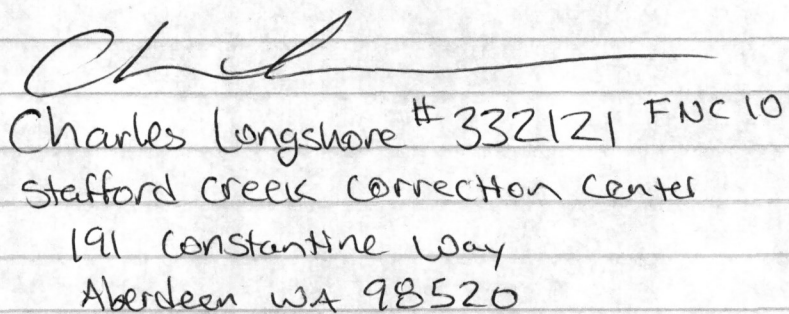 Charles Longshore # 332121 FNC 10
Stafford Creek Correction Center
191 Constantine Way
Aberdeen WA 98520